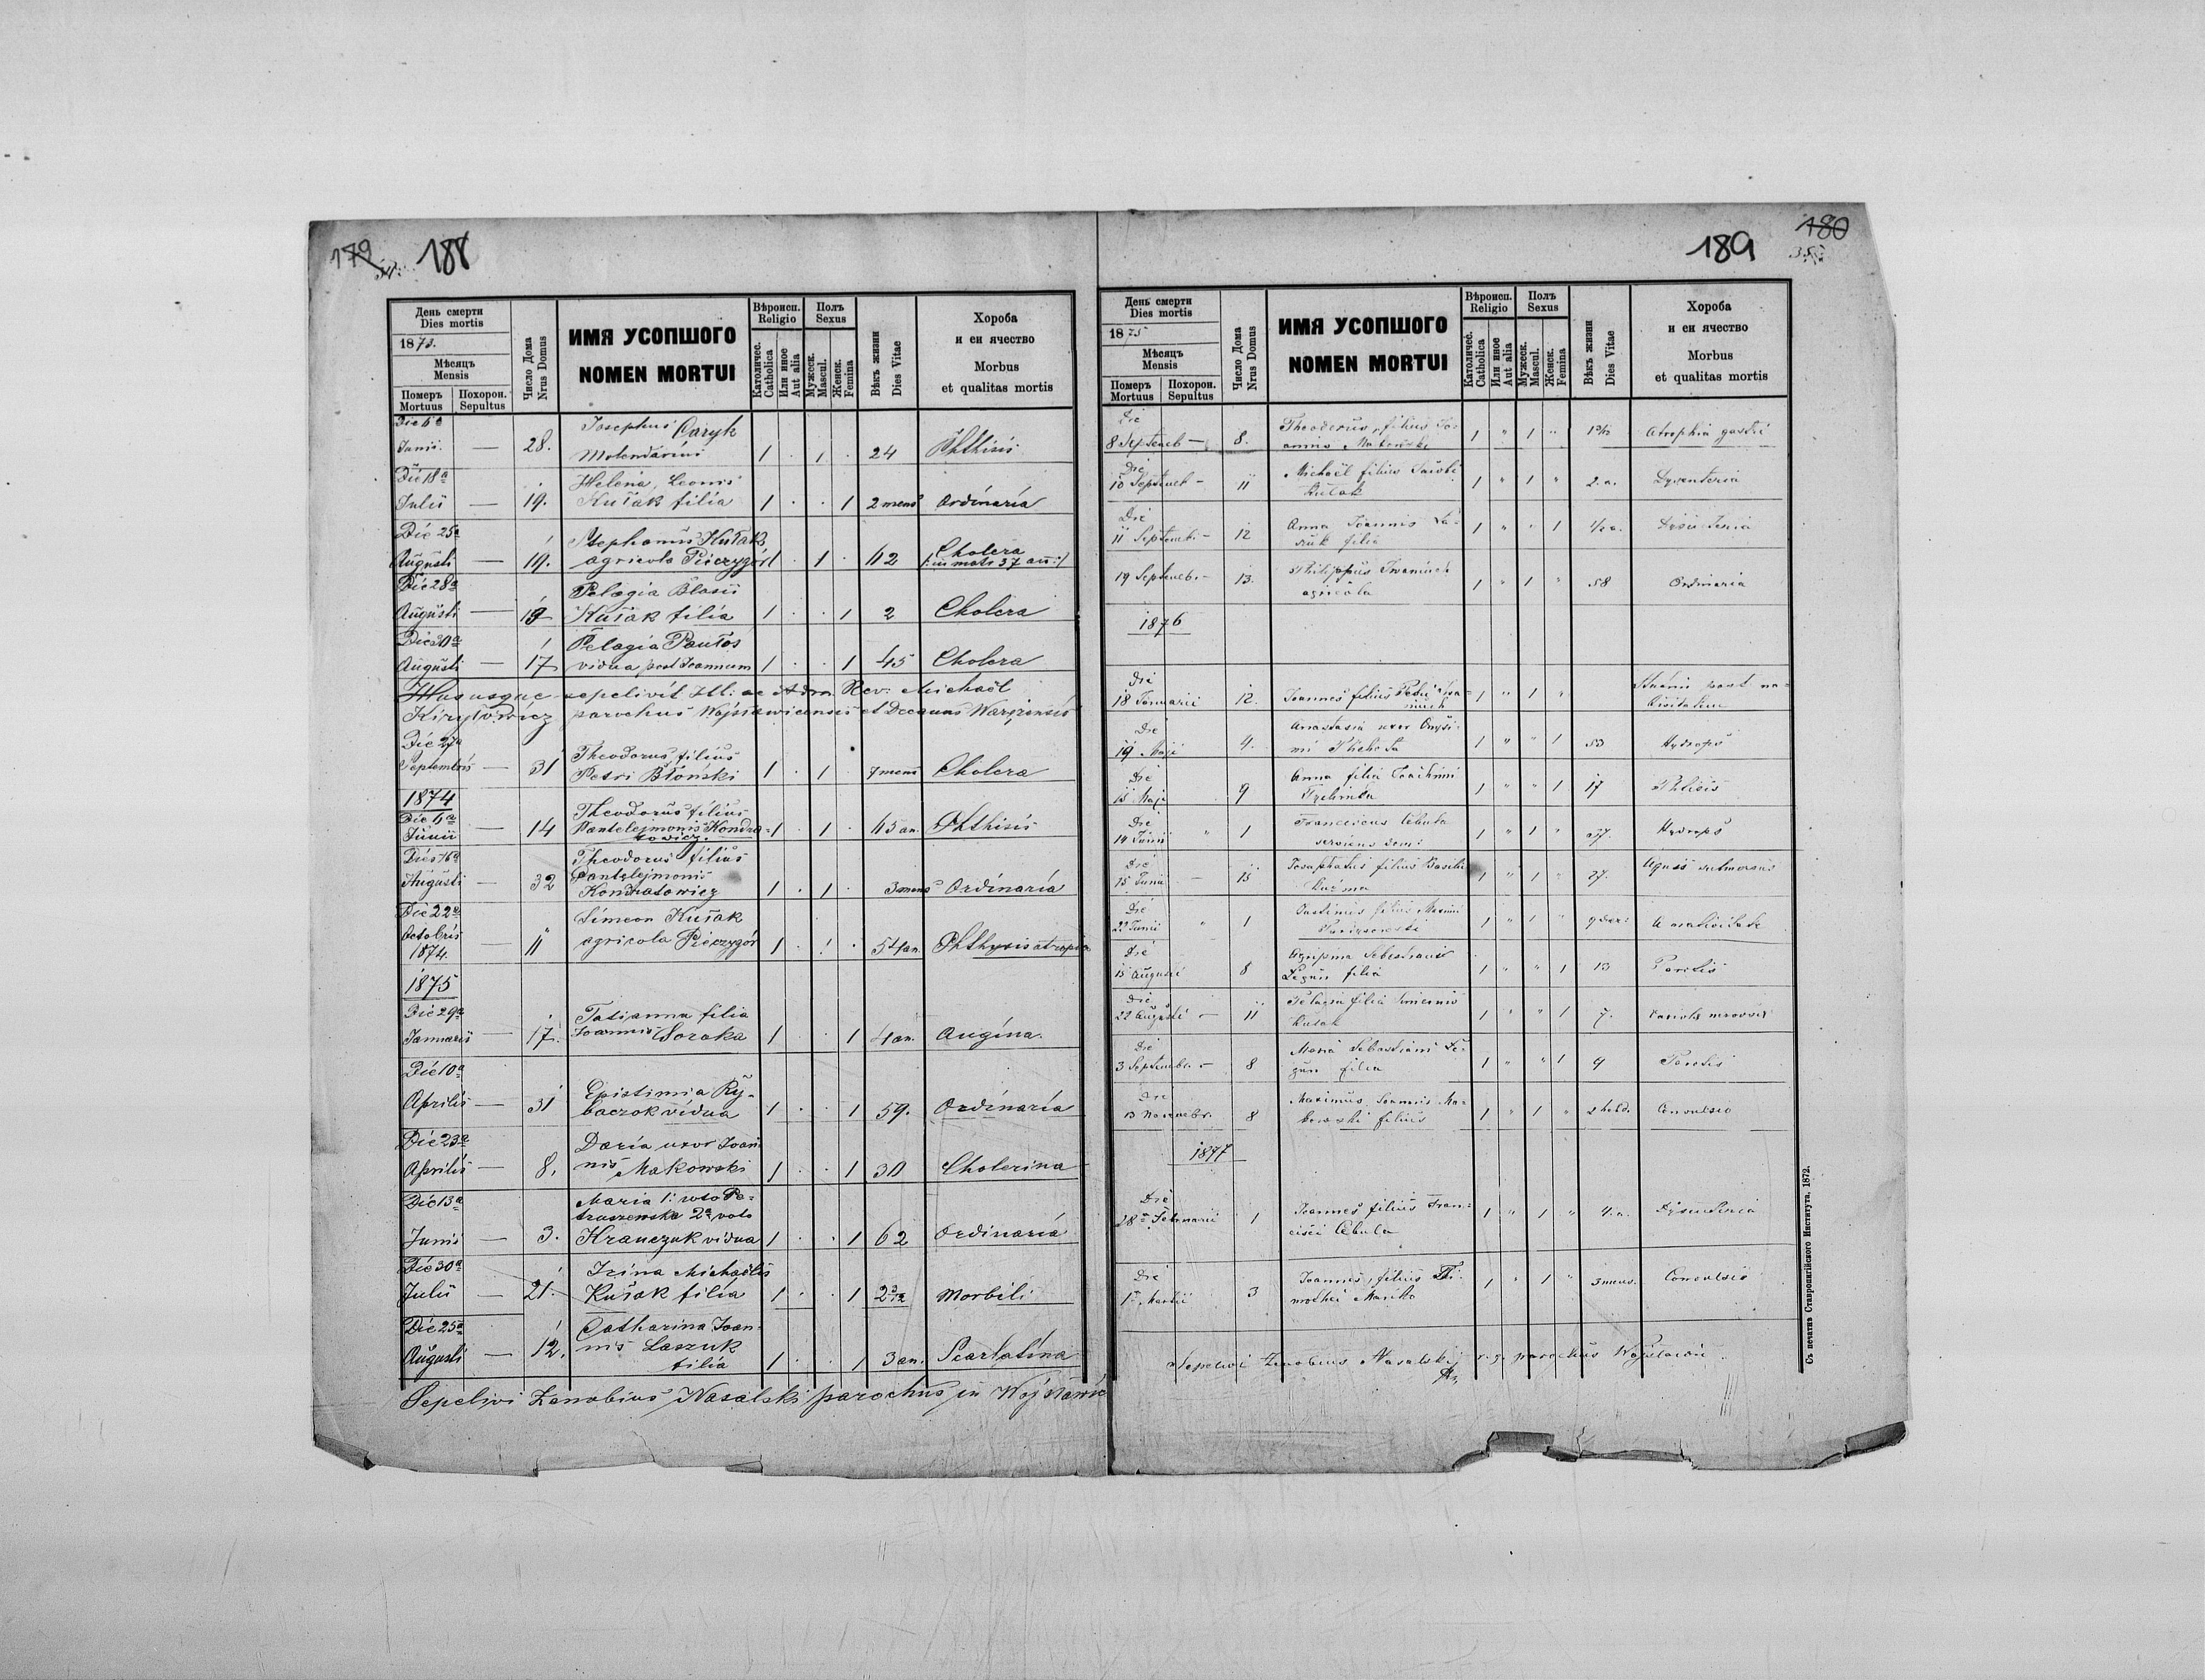 179
188
День смерти
Dies mortis
1873.
Мѣсяць
Mensis
Померъ
Mortuus
Похорон.
Sepultus
Число Дома
Nrus Domus
ИМЯ УСОПШОГО
NOMEN MORTUI
Вѣроисп.
Religio
Католичес.
Catholica
Или иное
Aut alia
Полъ
Sexus
Мужеск.
Mascul.
Женск.
Femina
Вѣкъ жизни
Dies Vitae
Хороба
и еи ячество
Morbus
et qualitas mortis
Die 6a
Josephus Caryk
Junii. — 28. Molendarius 1 . 1 . 24 Phthisis
Die 18a
Helena, Leonis
Julii — 19. Kušak filia 1 . . 1 2 mens Ordinaria
Die 25a
Stephanus Kušak
Cholera
Augusti — 19. agricola Pieczygór 1 . 1 . 42
Die 28a
Pelagia Blasii
Augusti — 19 Kušak filia 1 . . 1 2 Cholera
Pelagia Pautos
Augusti — 17 vidua post Joannem 1 . . 1 45 Cholera
Hus usque sepelivit Ill: ac Adm. Rev: Michaël
Kiryłowicz parochus Wojsławicensis et Decanus Warężensis
Die 27a
Theodorus filius
Septembris — 31 Petri Błonski 1 . 1 7 mens Cholera
1874
Die 6a
Theodorus filius
Junii — 14 Pantelejmonis Kondra= 1 . 1 . 45 an. Phthisis
towicz.
Dies 16a
Theodorus filius
Pantelejmonis
Augusti — 32 Kondratowicz 1 . 1 . 3 mens Ordinaria
Die 22a
Simeon Kušak
Octobris
1874. — 11 agricola Pieczygór 1 . 1 . 54 an. Phthysis
1875
Die 29a
Tatianna filia
Januarii — 17. Joannis Soroka 1 . 1 4 an. Angina.
Die 10a
Epistimia Ry-
Aprilis — 31 baczok vidua 1 . . 1 59. Ordinaria
Die 23a
Daria uxor Joan
Aprilis — 8. nis Makowski 1 . . 1 30 Cholerina
Die 13a
Maria 1: voto Pe-
traszewska 2a voto
Junii — 3. Krawczuk vidua 1 . . 1 62 Ordinaria
Die 30a
Irina Michaëlis
Julii — 21. Kušak filia 1 . . 1 2 3/12 Morbili
Die 25a
Catharina Joan-
Augusti — 12. nis Laszuk
filia 1 . . 1 3 an. Scarlatina
Sepelivi Zenobius Nasalski parochus in Wojsławic
180
189
День смерти
Dies mortis
1875
Мѣсяць
Mensis
Померъ
Mortuus
Похорон.
Sepultus
Число Дома
Nrus Domus
ИМЯ УСОПШОГО
NOMEN MORTUI
Вѣроисп.
Religio
Католичес.
Catholica
Или иное
Aut alia
Полъ
Sexus
Мужеск.
Mascul.
Женск.
Femina
Вѣкъ жизни
Dies Vitae
Хороба
и еи ячество
Morbus
et qualitas mortis
Die
Theodorus, filius Jo-
8 Septemb — 8. annis Makowski 1 " 1 " Atrophia
Die
Michaël filius
10 Septemb — 11 Kušak 1 " 1 " 2. a. Dysenteria
Die
Anna Joannis La-
11 Septemb. — 12 szuk filia 1 " " 1
19 Septemb. — 13. Philippus Iwaniuch
agricola 1 " 1 " 58 Ordinaria
1876
Die
18 Januarii 12. Joannes filius Petri Iwa=
niuch 1 " 1 "
Die
Anastasia uxor Onysi-
19 Maji 4. mi 1 " " 1 53 Hydrops
Die
Anna filia Joachimi
15 Maji 9 1 " " 1 17 Phtisis
Die
Franciscus Cebula
14 Junii " 1 serviens domi 1 " 1 " Hydrops
Die
Josaphatus filius Basilii
15 Junii — 15 Kuźma 1 " 1 " 27. Aquis submersus
Die
Justinus filius Maximi
22 Junii " 1 1 " 1 " a nativitate
Die
Agripina Sebastiani
15 Augusti 8 filia 1 " " 1 13 Parotis
Die
Pelagia filia Simeonis
22 Augusti — 11 Kušak 1 " " 1 7.
Die
Maria Sebastiani
3 Septembr — 8 filia 1 " " 1 9 Parotis
Die
Maximus, Joannis Ma-
13 Novembr. 8 kowski filius 1 " 1 " Convulsio
1877
Die
28a Februarii 1 Joannes filius Fran-
cisci Cebula 1 " 1 " 4. a. Dysenteria
Die
Joannes, filius Ti-
1a Martii 3 mothei 1 " 1 " 3 mens. Convulsio
Sepelivi Zenobius Nasalski r. g. parochus
Съ печатнѣ Ставропигійского Института, 1872.